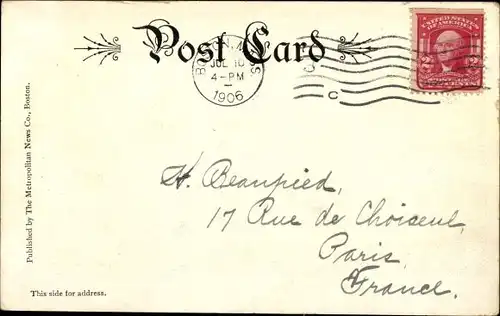 Post Card
BOSTON, MASS
JUL 10
4-PM
1906
C
UNITED STATES
OF AMERICA
2 2
CENTS
H. Beaupied,
17 Rue de Choiseul,
Paris,
France.
Published by The Metropolitan News Co., Boston.
This side for address.